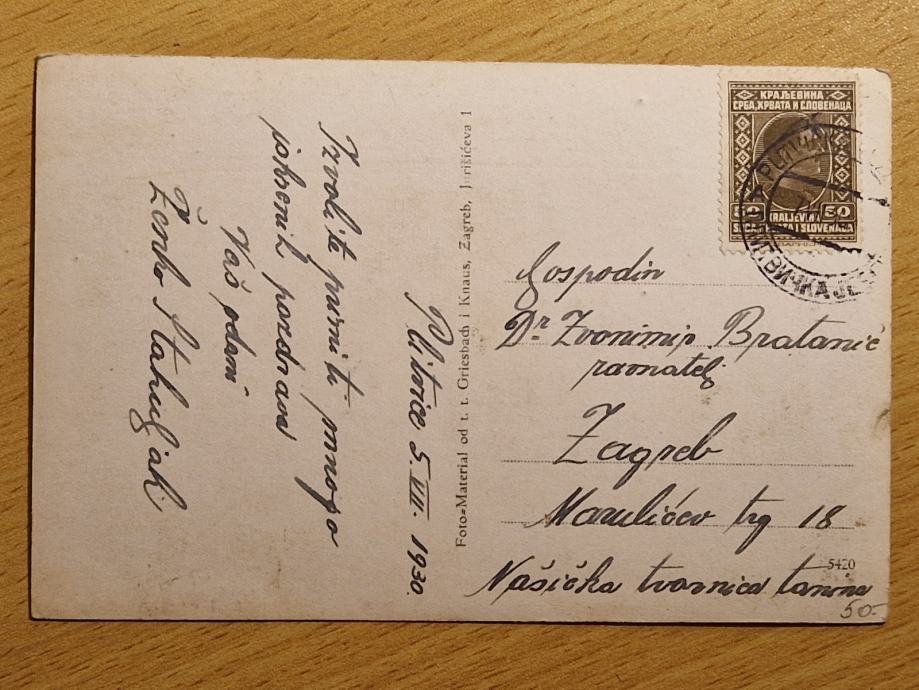 Plitvice 5. VII. 1930.
Izvolite primiti mnogo
iskrenih pozdrava
Vaš odani
Ženko Stahuljak
Foto=Material od t. t. Griesbach i Knaus, Zagreb, Jurišićeva 1
КРАЉЕВИНА
СРБА, ХРВАТА И СЛОВЕНАЦА
50 50
KRALJEVINA
SLOVENACA
Gospodin
Dr Zvonimir Bratanić
ravnatelj
Zagreb
Marulićev trg 18
5420
Našička tvornica tanina
50.-